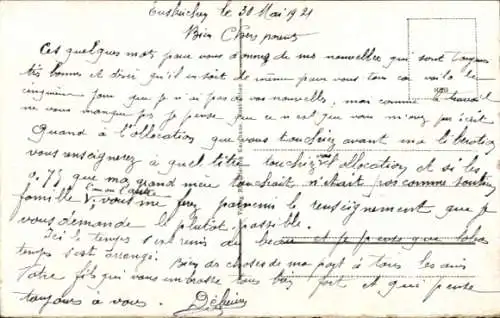 Euskirchen le 30 Mai 1921
Bien Chers parents
Ces quelques mots pour vous donner de mes nouvelles qui sont toujours
très bonnes et désir qu'il en soit de même pour vous tous car voila le
cinquième jour que je n'ai pas de vos nouvelles, mais comme le travail
ne vous manque pas je pense que ce n'est que vous m'avez pas écrit
Quand à l'allocation que vous touchiez avant ma libération
vous enseignerez à quel titre touchiez vous l'allocation et si les
0,75 que ma grand mère touchait n'était pas comme soutien
famille ou en l'autre
V. vous me ferez parvenir le renseignement que je
vous demande le plutôt possible.
Ici le temps s'est remis au beau et je pense que labas
temps s'est arrangé.
Bien des choses de ma part à tous les amis
Votre fils qui vous embrasse tous bien fort et qui pense
toujours à vous.